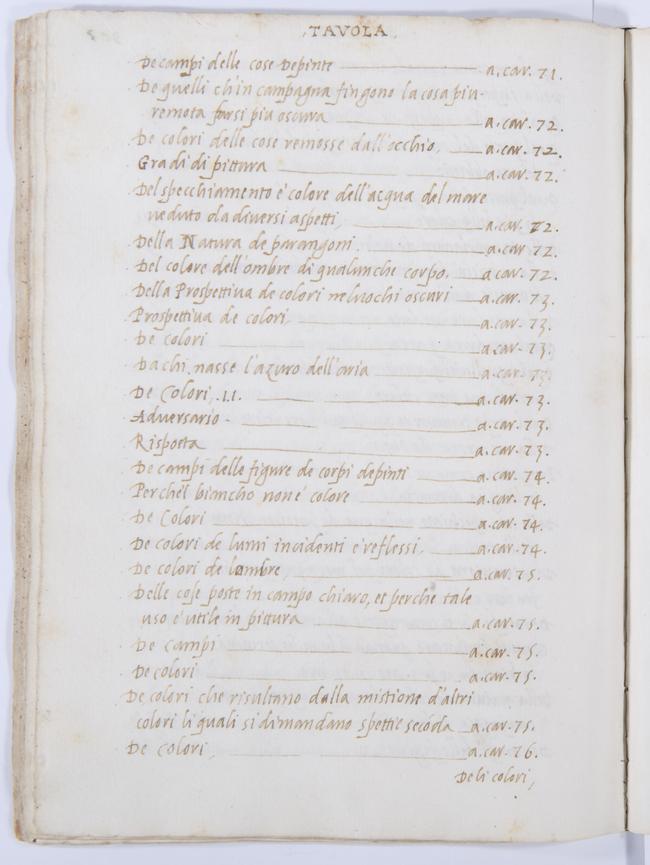 .TAVOLA.
De campi delle cose depinte a.car. 71.
De quelli ch'in campagna fingono la cosa piu
remota farsi piu oscura a.car. 72.
De colori delle cose remosse dall'occhio, a.car. 72.
Gradi di pittura a.car. 72.
Del specchiamento e' colore dell'acqua del mare
veduto da diversi aspetti, a.car. 72.
Della Natura de parangoni. a.car. 72.
Del colore dell'ombre di qualunche corpo. a car. 72.
Della Prospettiva de colori ne luochi oscuri a.car. 73.
Prospettiva de colori, a.car. 73.
De colori a.car. 73.
Da chi nasse l'azuro dell'aria a.car. 73.
De Colori, .II. a.car. 73.
Adversario - a.car. 73.
Risposta a.car. 73.
De campi delle figure de corpi depinti a.car. 74.
Perche'l biancho non e' colore a.car. 74.
De Colori a.car. 74.
De colori de lumi incidenti e reflessi, a.car. 74.
De colori de lombre, a.car. 75.
Delle cose poste in campo chiaro, et perche tale
uso e' utile in pittura a.car. 75.
De campi a.car. 75.
De colori a.car. 75.
De colori che risultano dalla mistione d'altri
colori li quali si dimandano spetie secõda a.car. 75.
De Colori, a.car. 76.
De li colori,